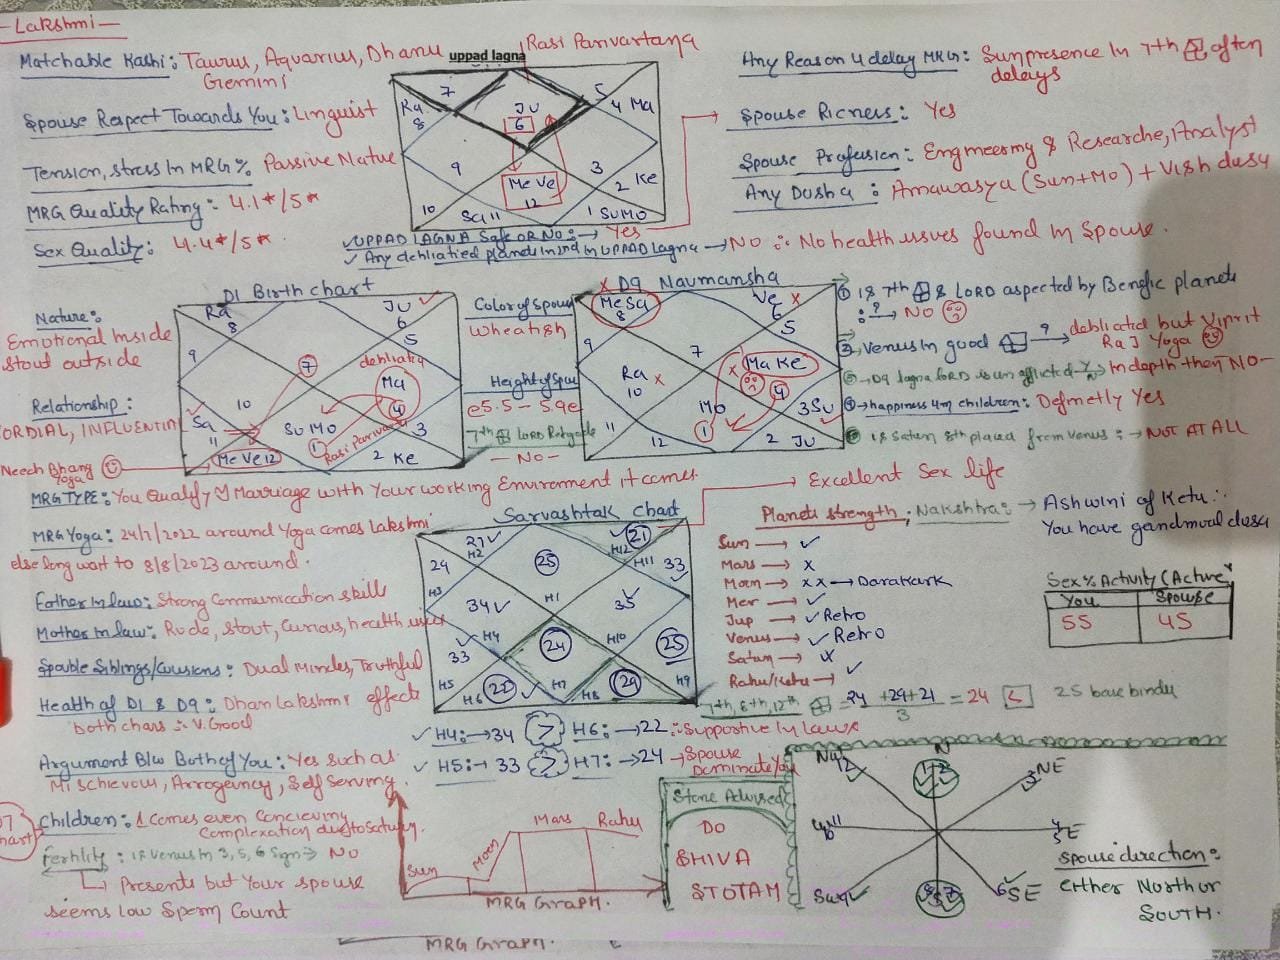 -Lakshmi-
Matchable Rashi: Taurus, Aquarius, Dhanu
Gemini
Spouse Respect Towards You: Linguist
Tension, stress In MRG%: Passive Nature
MRG Quality Rating: 4.1*/5*
Sex Quality: 4.4*/5*
uppad lagna
Rasi Parivartana
7
Ra
8
JU
6
5
4 Ma
9
3
Me Ve
12
2 Ke
10
Sa 11
1 SUMO
✓UPPAD LAGNA Safe OR NO:→ Yes
✓ Any dehliatied planets In 2nd In UPPAD lagna → NO ∴ No health issues found In Spouse.
Any Reason 4 delay MRG: Sun presence In 7th often
delays
Spouse Ricness: Yes
Spouse Profession: Engineering & Researche, Analyst
Any Dosha: Amawasya (Sun+Mo) + Vish dosa
Nature:
Emotional Inside
Stout outside
Relationship:
CORDIAL, INFLUENTIAL
Neech Bhang
Yoga
D1 Birth chart
Ra
8
JU
6
5
9
7
dehliated
Ma
4
10
Sa
11
SU MO
1
Rasi Parivartana
3
Me Ve 12
2 Ke
Color of Spouse
Wheatish
Height of Spouse
5.5 - 5.9
7th LORD Retrograde
- No -
x D9 Navmansha
Me Sa
8
Ve x
6
5
9
7
Ma Ke
x
4
Ra x
10
Mo
1
3 Su
11
12
2 Ju
① Is 7th & LORD aspected by Benefic planets
:→ NO
② Venus In good → dehliated but Viprit
Raj Yoga
③→ D9 lagna LORD is un afflicted → In depth then NO-
④→ happiness 4m children: Definetly Yes
⑤ Is Saturn 8th placed from Venus: → NOT AT ALL
MRG TYPE: You Qualify Marriage with Your working Environment it comes.
→ Excellent Sex life
MRG Yoga: 24/7/2022 around Yoga comes Lakshmi
else long wait to 8/8/2023 around.
Father In law: Strong Communication skills
Mother In law: Rude, Stout, Curious, health issues
Spouse Siblings/Cousions: Dual Mindes, Truthful
Health of D1 & D9: Dhan Lakshmi effects
both chars ∴ V.Good
Argument B/w Both of You: Yes such as
Mischievous, Arrogancy, Self Serving.
Sarvashtak Chart
27✓
H2
21
H12
24
25
H11 33
H3
H1
34✓
35
H4
24
H10
25
33
H5
H6 22
H7
H8 29
H9
✓H4:→34 > H6:→22 ∴ Supportive In Laws
✓H5:→ 33 > H7:→24 → Spouse
Dominate You
Planets strength: Nakshtra: → Ashwini of Ketu ∴
You have gandmool dosa
Sun → ✓
Mars → x
Moon → xx → Darakark
Mer → ✓
Jup → ✓ Retro
Venus → ✓ Retro
Satun → x
Rahu/Ketu → ✓
7th, 8th, 12th = 24+29+21 = 24 < 25 base bindu
3
Sex % Activity (Active)
You Spouse
55 45
D7
Chart
Children: 1 comes even Concieving
Complexation due to Saturn.
Fertility: Is Venus In 3, 5, 6 Sign → No
→ Presents but Your spouse
seems low Sperm Count
Sun
Moon
Mars
Rahu
MRG GRAPH.
MRG Graph.
Stone Advised
DO
SHIVA
STOTAM
NW
12
N
1 2
3 NE
W 11
E
SW 9
8 S 7
6 SE
Spouse direction:
Either North or
SOUTH.